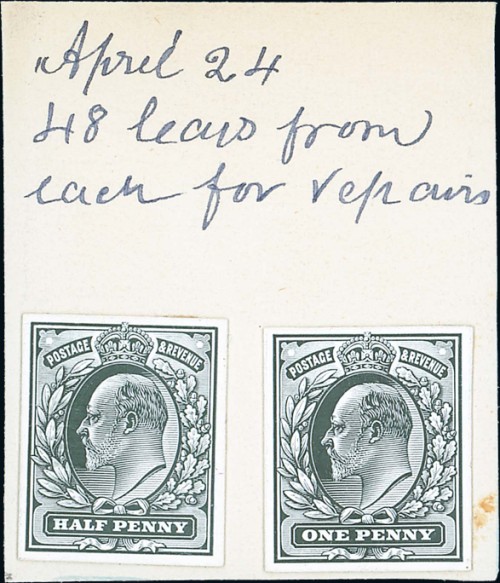 April 24
48 leads from
each for repairs
POSTAGE & REVENUE POSTAGE & REVENUE
HALF PENNY ONE PENNY